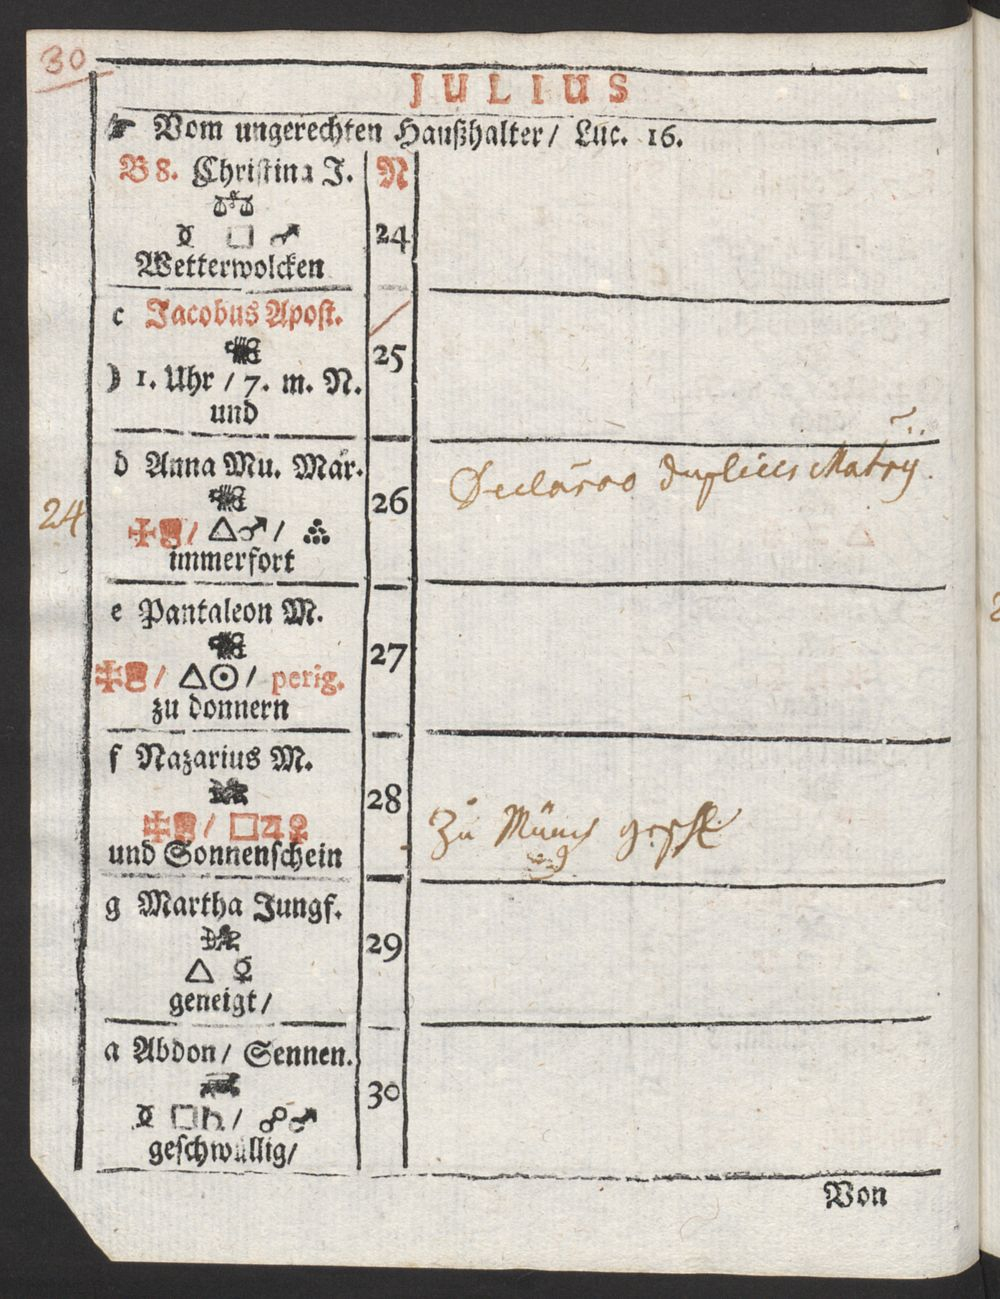 30
JULIUS
☛ Vom ungerechten Haußhalter/ Luc. 16.
B 8. Christina J. N
♎
☿ □ ♂ 24
Wetterwolcken
c Jacobus Apost.
25
☽ 1. Uhr / 7. m. N.
und
d Anna Mu. Mar.
24
26
/ △♂/
immerfort
e Pantaleon M.
27
/ △☉/ perig.
zu donnern
f Nazarius M.
28 Zu
/ □♃♀
und Sonnenschein
g Martha Jungf.
29
△ ☿
geneigt/
a Abdon/ Sennen.
30
☿ □♄/ ☍♂
geschwüllig/
Von